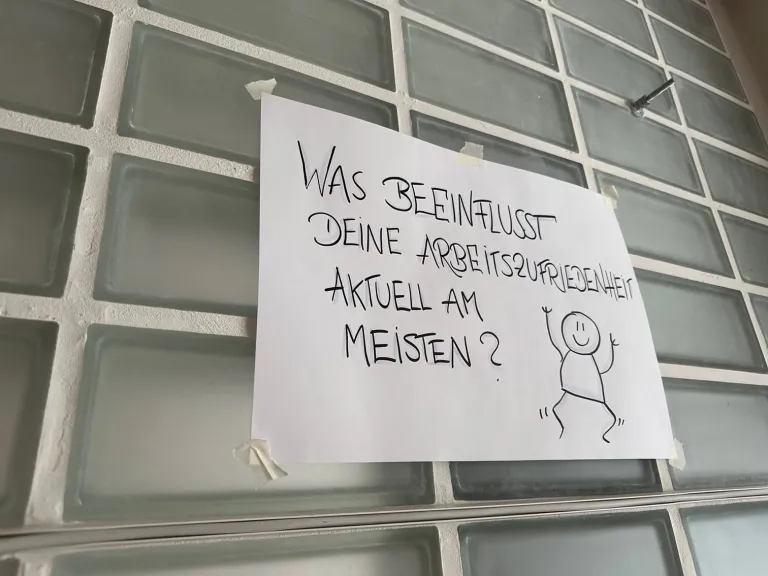 WAS BEEINFLUSST
DEINE ARBEITSZUFRIEDENHEIT
AKTUELL AM
MEISTEN?